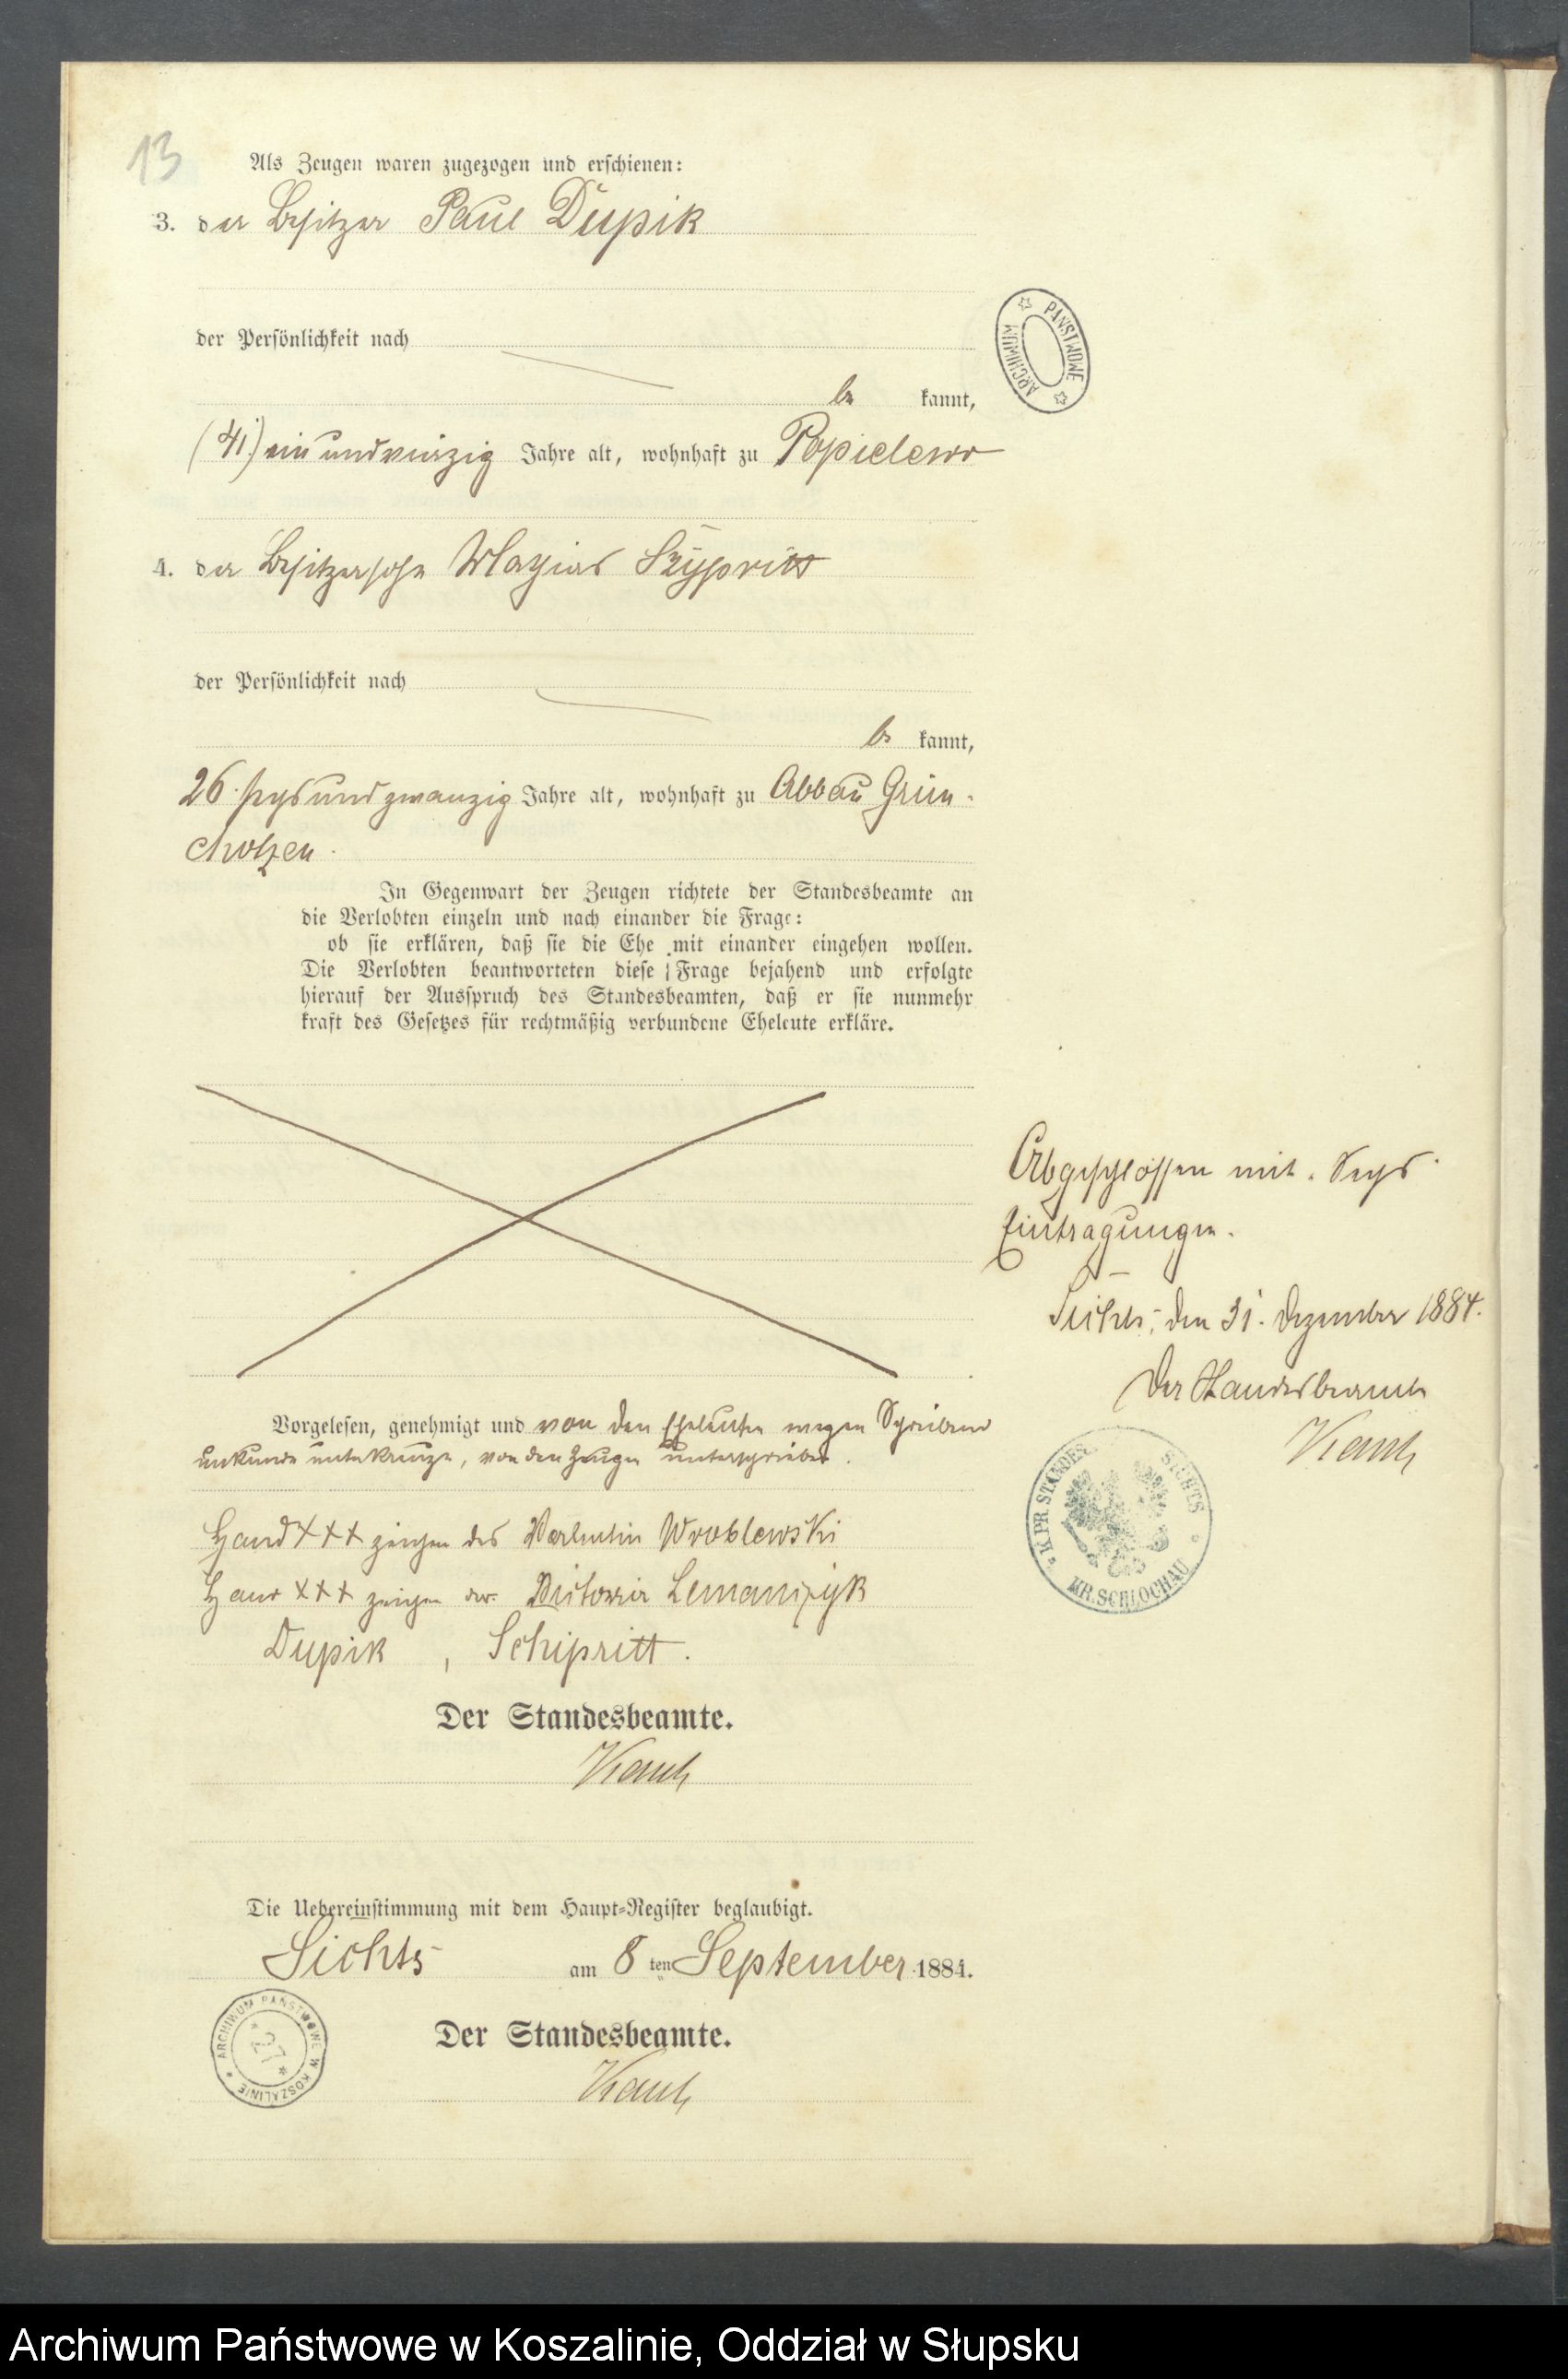 13
Als Zeugen waren zugezogen und erschienen:
3. der Besitzer Paul Dupik
der Persönlichkeit nach
be kannt,
(41) ein und vierzig Jahre alt, wohnhaft zu Popielewo
4. der Besitzersohn Mathias
der Persönlichkeit nach
be kannt,
26. sechs und zwanzig Jahre alt, wohnhaft zu Abbau Grün-
chotzen.
In Gegenwart der Zeugen richtete der Standesbeamte an
die Verlobten einzeln und nach einander die Frage:
ob sie erklären, daß sie die Ehe mit einander eingehen wollen.
Die Verlobten beantworteten diese Frage bejahend und erfolgte
hierauf der Ausspruch des Standesbeamten, daß er sie nunmehr
kraft des Gesetzes für rechtmäßig verbundene Eheleute erkläre.
Vorgelesen, genehmigt und von den Eheleuten wegen Schreibens
unkunde unterkreuzt, von den Zeugen unterschrieben.
Hand XXX zeichen des Valentin Wroblewski
Hand XXX zeichen der Victoria Lemanczyk
Dupik, Schipritt.
Der Standesbeamte.
Die Uebereinstimmung mit dem Haupt-Register beglaubigt.
Sichts am 8 ten September 1884.
Der Standesbeamte.
Abgeschlossen mit Sechs
Eintragungen.
Sichts, den 31. Dezember 1884.
Der Standesbeamte
K. PR. STANDES SICHTS
KR. SCHLOCHAU
ARCHIWUM PAŃSTWOWE
ARCHIWUM PAŃSTWOWE W KOSZALINIE
27
Archiwum Państwowe w Koszalinie, Oddział w Słupsku